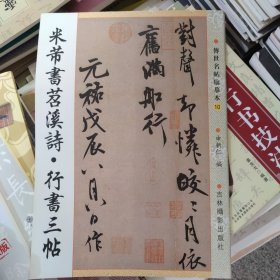 傳世名帖臨摹本
10
吉林攝影出版社
對聲却憐皎〻月依
舊滿船行
元祐戊辰八月八日作
米芾書苕溪詩·行書三帖
行書技法